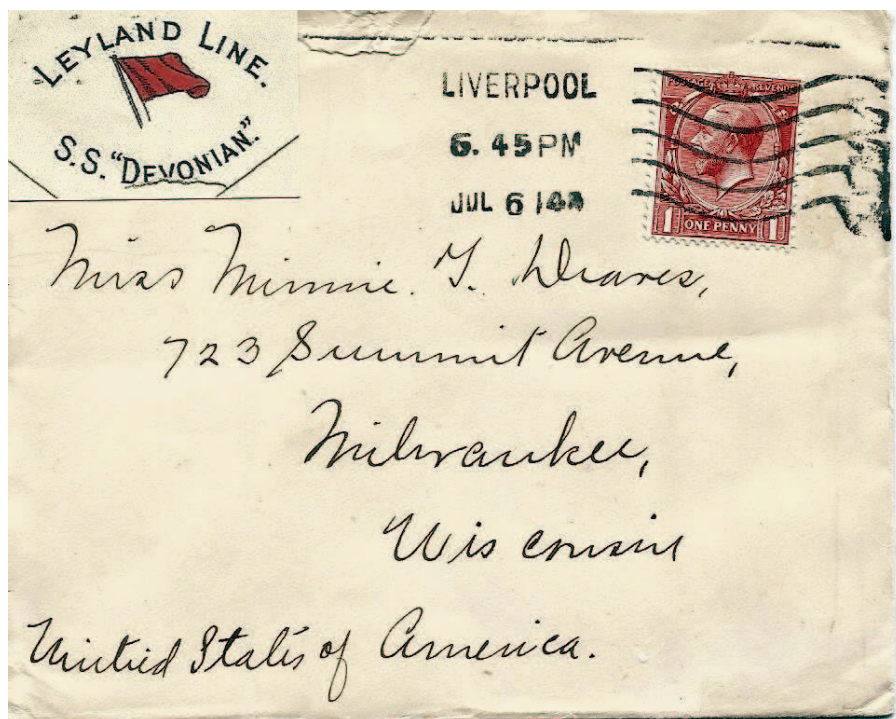 LEYLAND LINE.
S.S. "DEVONIAN."
LIVERPOOL
6. 45 PM
JUL 6 14
POSTAGE REVENUE
1 ONE PENNY 1
Miss Minnie. T. Deaves,
723 Summit Avenue,
Milwaukee,
Wisconsin
United States of America.